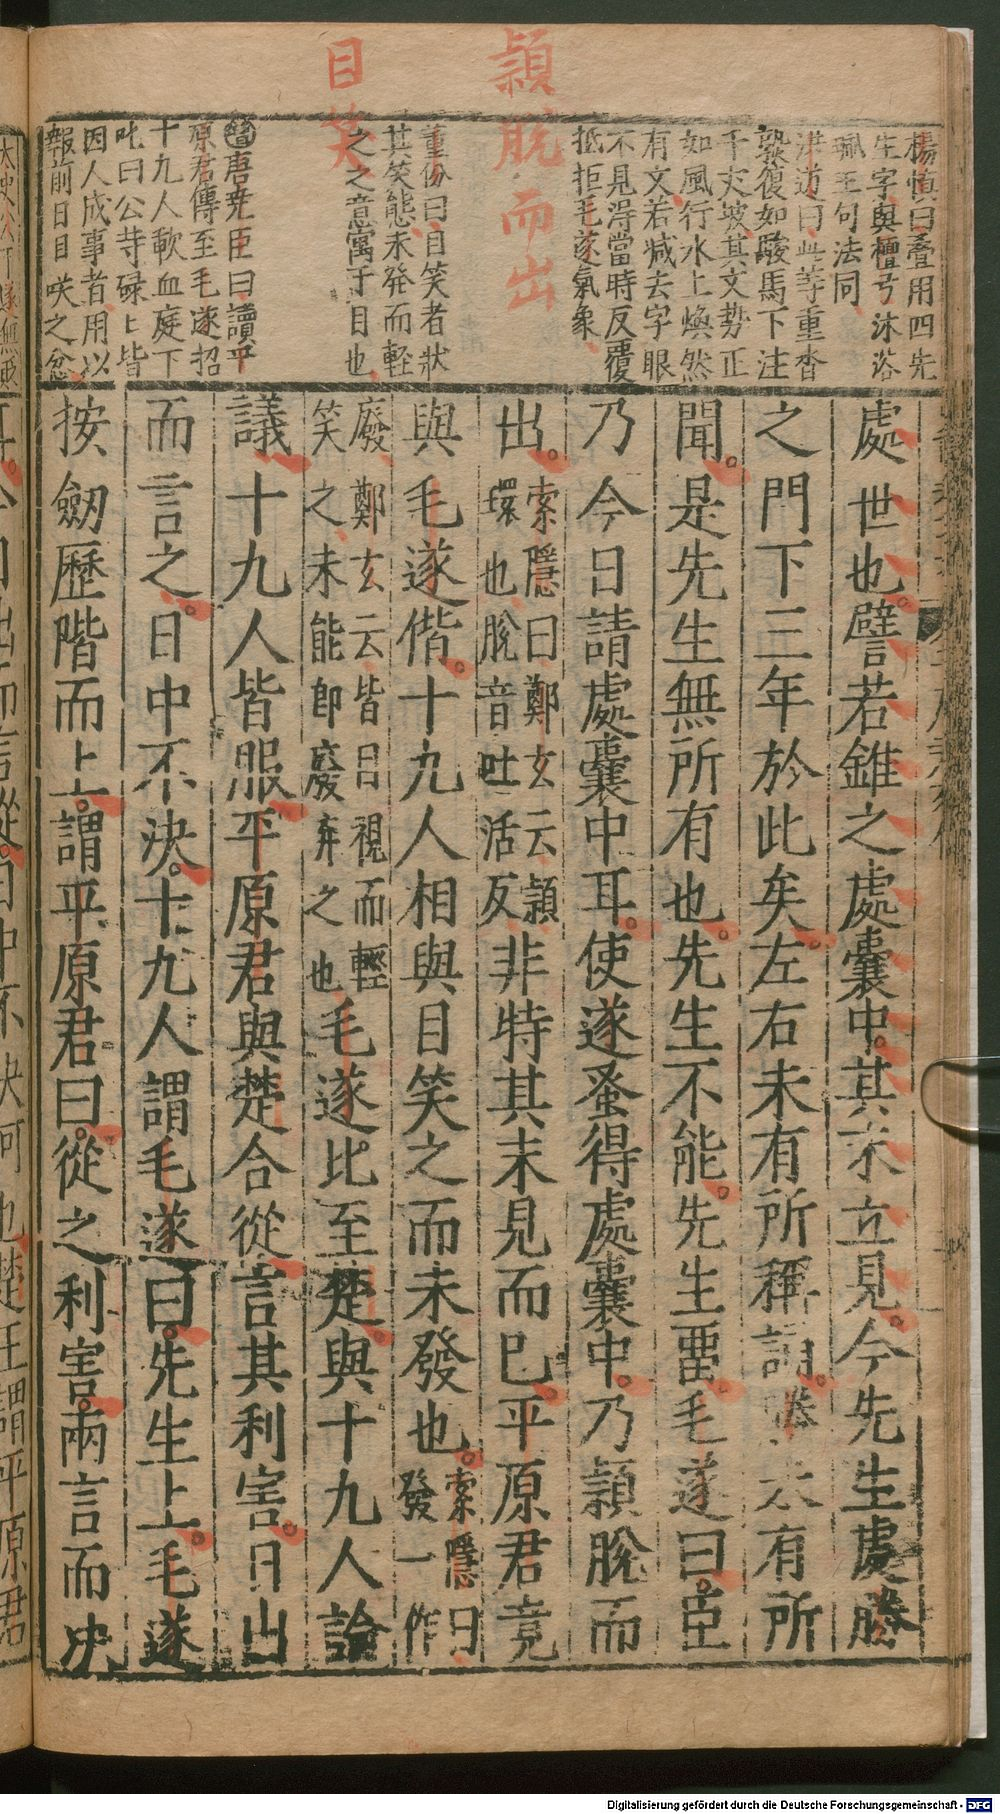 穎脫而出
目笑
楊慎曰疊用四先
生字與檀弓沐浴
珮玉句法同
洪邁曰此等重沓
熟復如駿馬下注
千丈坡其文勢正
如風行水上煥然
有文若減去字眼
不見得當時反覆
抵拒毛遂氣象
董份曰目笑者狀
其笑態未發而輕
之之意寓于目也
唐堯臣曰讀平
原君傳至毛遂招
十九人歃血庭下
叱曰公等碌上皆
因人成事者用以
報前日目咲之忿
處世也譬若錐之處囊中其末立見今先生處勝
之門下三年於此矣左右未有所稱誦勝未有所
聞是先生無所有也先生不能先生畱毛遂曰臣
乃今日請處囊中耳使遂蚤得處囊中乃穎脫而
出索隱曰鄭玄云穎
環也脫音吐活反非特其末見而已平原君竟
與毛遂偕十九人相與目笑之而未發也索隱曰
發一作
廢鄭玄云皆目視而輕
笑之未能即廢弃之也毛遂比至楚與十九人論
議十九人皆服平原君與楚合從言其利害日出
而言之日中不決十九人謂毛遂曰先生上毛遂
按劒歷階而上謂平原君曰從之利害兩言而决
王謂平原君
Digitalisierung gefördert durch die Deutsche Forschungsgemeinschaft - DFG